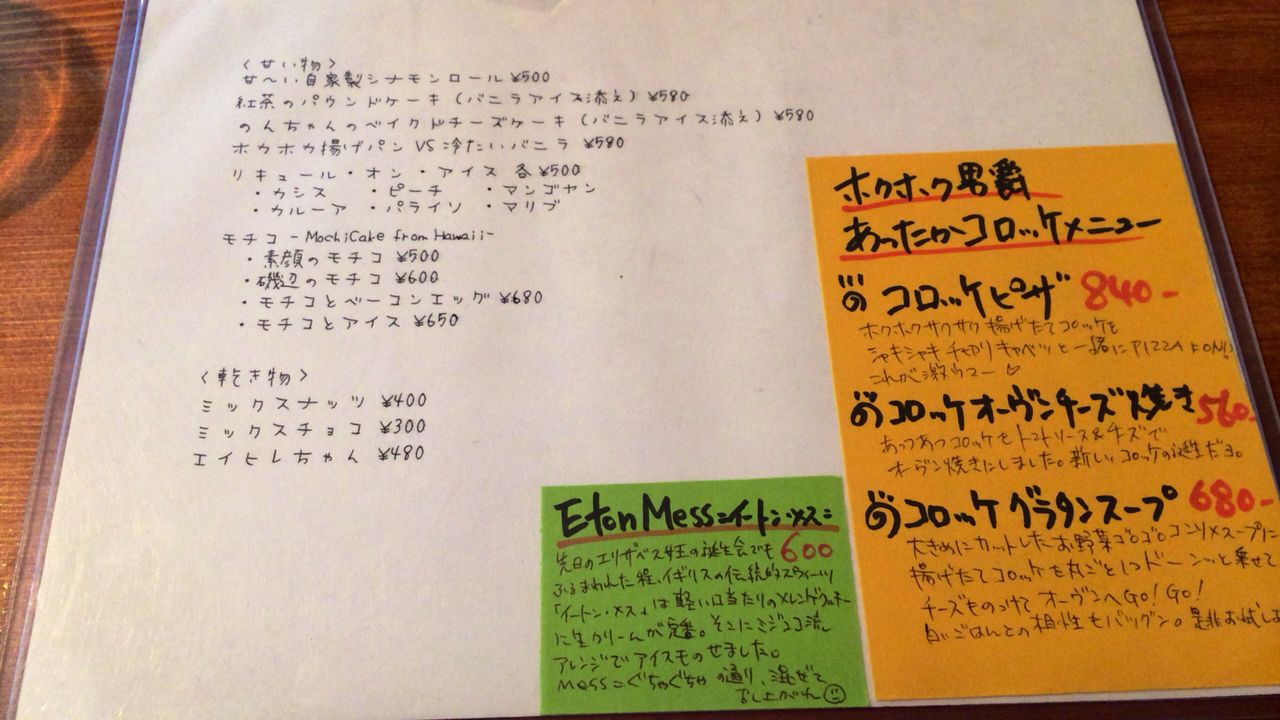 〈甘い物〉
甘〜い自家製シナモンロール ¥500
紅茶のパウンドケーキ(バニラアイス添え) ¥580
のんちゃんのベイクドチーズケーキ(バニラアイス添え) ¥580
ホカホカ揚げパン VS 冷たいバニラ ¥580
リキュール・オン・アイス 各¥500
・カシス ・ピーチ ・マンゴヤン
・カルーア ・パライソ ・マリブ
モチコ -MochiCake from Hawaii-
・素顔のモチコ ¥500
・磯辺のモチコ ¥600
・モチコとベーコンエッグ ¥680
・モチコとアイス ¥650
〈乾き物〉
ミックスナッツ ¥400
ミックスチョコ ¥300
エイヒレちゃん ¥480
Eton Mess=イートン・メス=
600
先日のエリザベス女王の誕生会でも
ふるまわれた程、イギリスの伝統的スウィーツ
「イートン・メス」は軽い口当たりのメレンゲクッキー
に生クリームが定番。そこにミジンコ流
アレンジでアイスものせました。
Mess=ぐちゃぐちゃ の通り、混ぜて
召し上がれ
ホクホク男爵
あったかコロッケメニュー
コロッケピザ 840-
ホクホクサクサク揚げたてコロッケを
シャキシャキ千切りキャベツと一緒にPIZZAにON!!
これが激ウマー♡
コロッケオーヴンチーズ焼き 560-
あつあつコロッケをトマトソース&チーズで
オーヴン焼きにしました。新しいコロッケの誕生だヨ。
コロッケグラタンスープ 680-
大きめにカットしたお野菜ゴロゴロコンソメスープに
揚げたてコロッケを丸ごと1コドーンッと乗せて
チーズものっけてオーヴンへGO!GO!
白いごはんとの相性もバツグン。是非お試しを